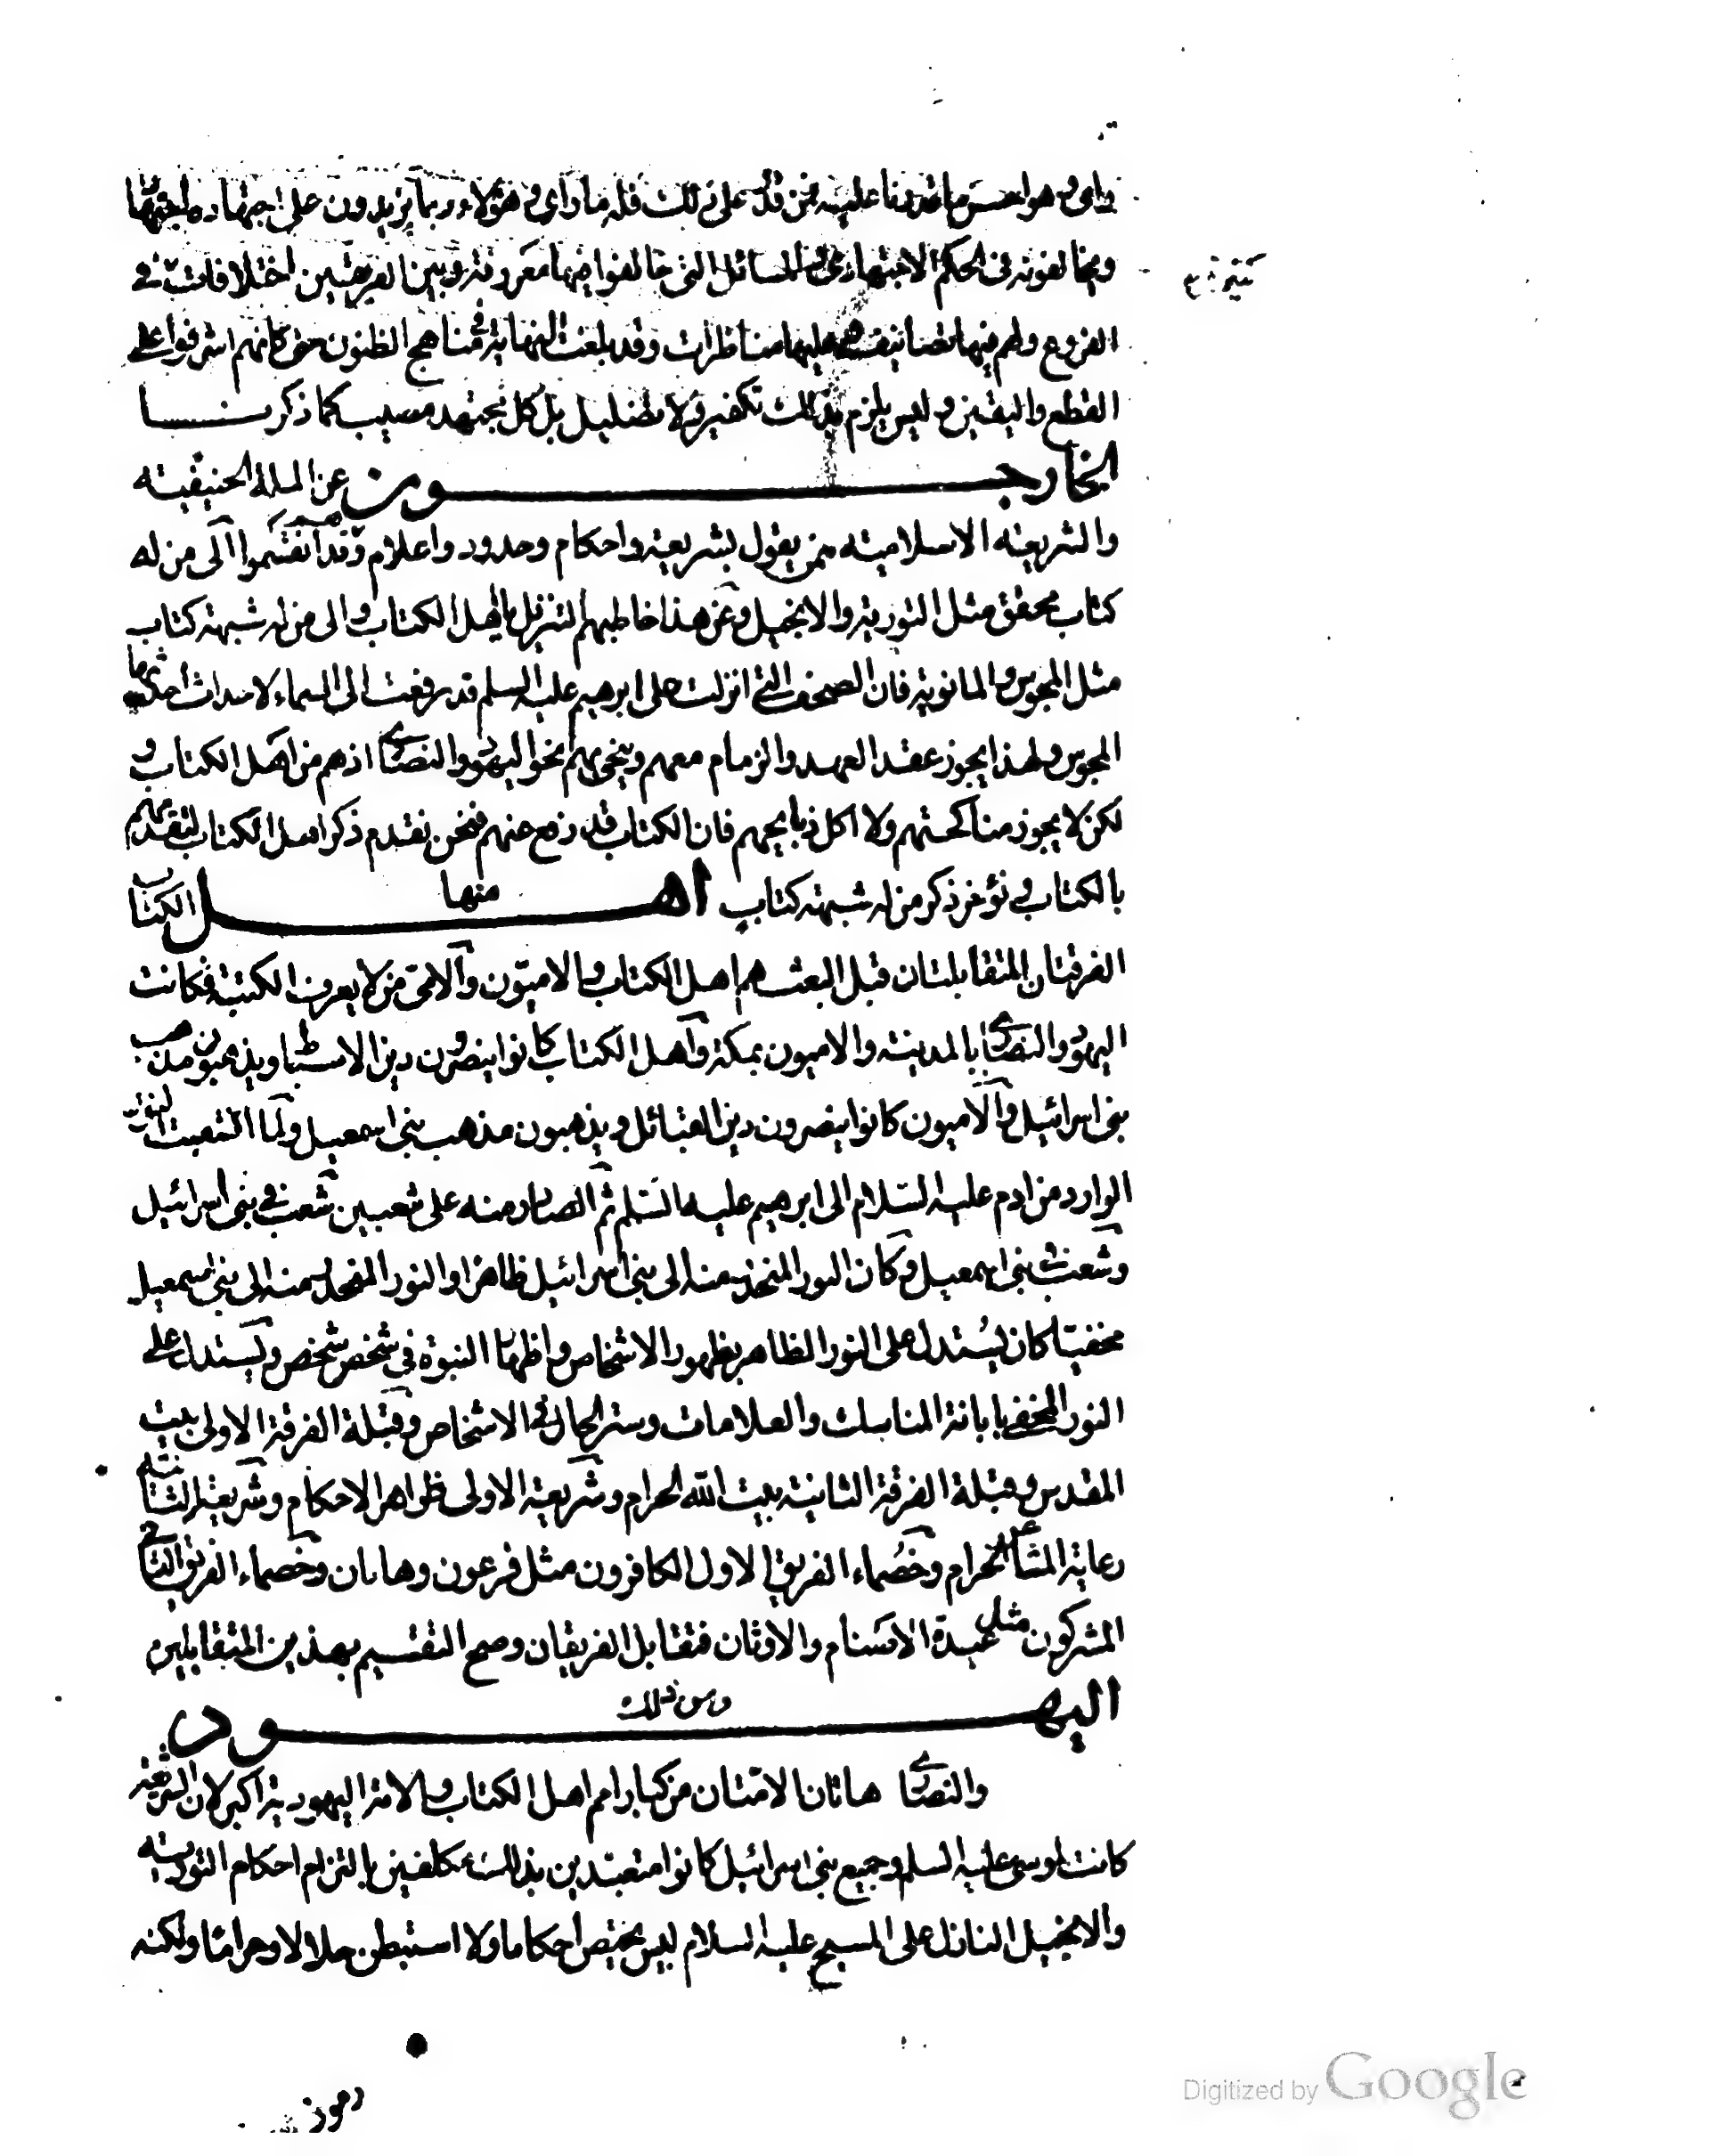 راى وهو احسن ما قدرنا عليه فمن قدر على ذلك فله ما راى وهؤلاء ربما يزيدون على اجتهاده اجتهادا
ويخالفونه فى الحكم الاجتهادى والمسائل التى خالفوا فيها معروفة وبين الفريقين اختلافات كثيرة فى
كثيرة
الفروع ولهم فيها تصانيف وعليها مناظرات وقد بلغت النهاية فى مناهج الظنون حتى كانهم اشرفوا على
القطع واليقين وليس يلزم بذلك تكفير ولا تضليل بل كل مجتهد مصيب كما ذكرنا
الخارجون عن الملة الحنيفية
والشريعة الاسلامية ممن يقول بشريعة واحكام وحدود واعلام وقد انقسموا الى من له
كتاب محقق مثل التورية والانجيل وعن هذا خاطبهم التنزيل باهل الكتاب والى من له شبهة كتاب
مثل المجوس والمانوية فان الصحف التى انزلت على ابرهيم عليه السلم قد رفعت الى السماء لاحداث احدثها
المجوس ولهذا يجوز عقد العهد والزمام معهم وينحى بهم نحو اليهود والنصارى اذ هم من اهل الكتاب و
لكن لا يجوز مناكحتهم ولا اكل ذبايحهم فان الكتاب قد رفع عنهم فنحن نقدم ذكر اهل الكتاب لتقدمهم
بالكتاب ونؤخر ذكر من له شبهة كتاب منها اهل الكتاب
الفرقتان المتقابلتان قبل البعث هم اهل الكتاب والاميون والامى من لا يعرف الكتبة فكانت
اليهود والنصارى بالمدينة والاميون بمكة واهل الكتاب كانوا ينصرون دين الاسباط ويذهبون مذهب
بنى اسرائيل والاميون كانوا ينصرون دين القبائل ويذهبون مذهب بنى اسمعيل ولما انشعبت النور
الوارد من ادم عليه السلام الى ابرهيم عليه السلم ثم الصادر منه على شعبين شعب فى بنى اسرائيل
وشعب فى بنى اسمعيل وكان النور المنحدر منه الى بنى اسرائيل ظاهرا والنور المنحدر منه الى بنى اسمعيل
مخفيا كان يستدل على النور الظاهر بظهور الاشخاص واظهار النبوة فى شخص شخص ويستدل على
النور المخفى بابانة المناسك والعلامات وستر الحال فى الاشخاص وقبلة الفرقة الاولى بيت
المقدس وقبلة الفرقة الثانية بيت الله الحرام وشريعة الاولى ظواهر الاحكام وشريعة الثانية
رعاية المشاعر الحرام وخصماء الفريق الاول الكافرون مثل فرعون وهامان وخصماء الفريق الثانى
المشركون مثل عبدة الاصنام والاوثان فتقابل الفريقان وصح التقسيم بهذين المتقابلين
ومن ذلك اليهود
والنصارى هاتان الامتان من كبار امم اهل الكتاب والامة اليهودية اكبر لان الشريعة
كانت لموسى عليه السلم وجميع بنى اسرائيل كانوا متعبدين بذلك مكلفين بالتزام احكام التورية
والانجيل النازل على المسيح عليه السلام ليس يختص احكاما ولا استبطن حلالا وحراما ولكنه
رموز
Digitized by Google